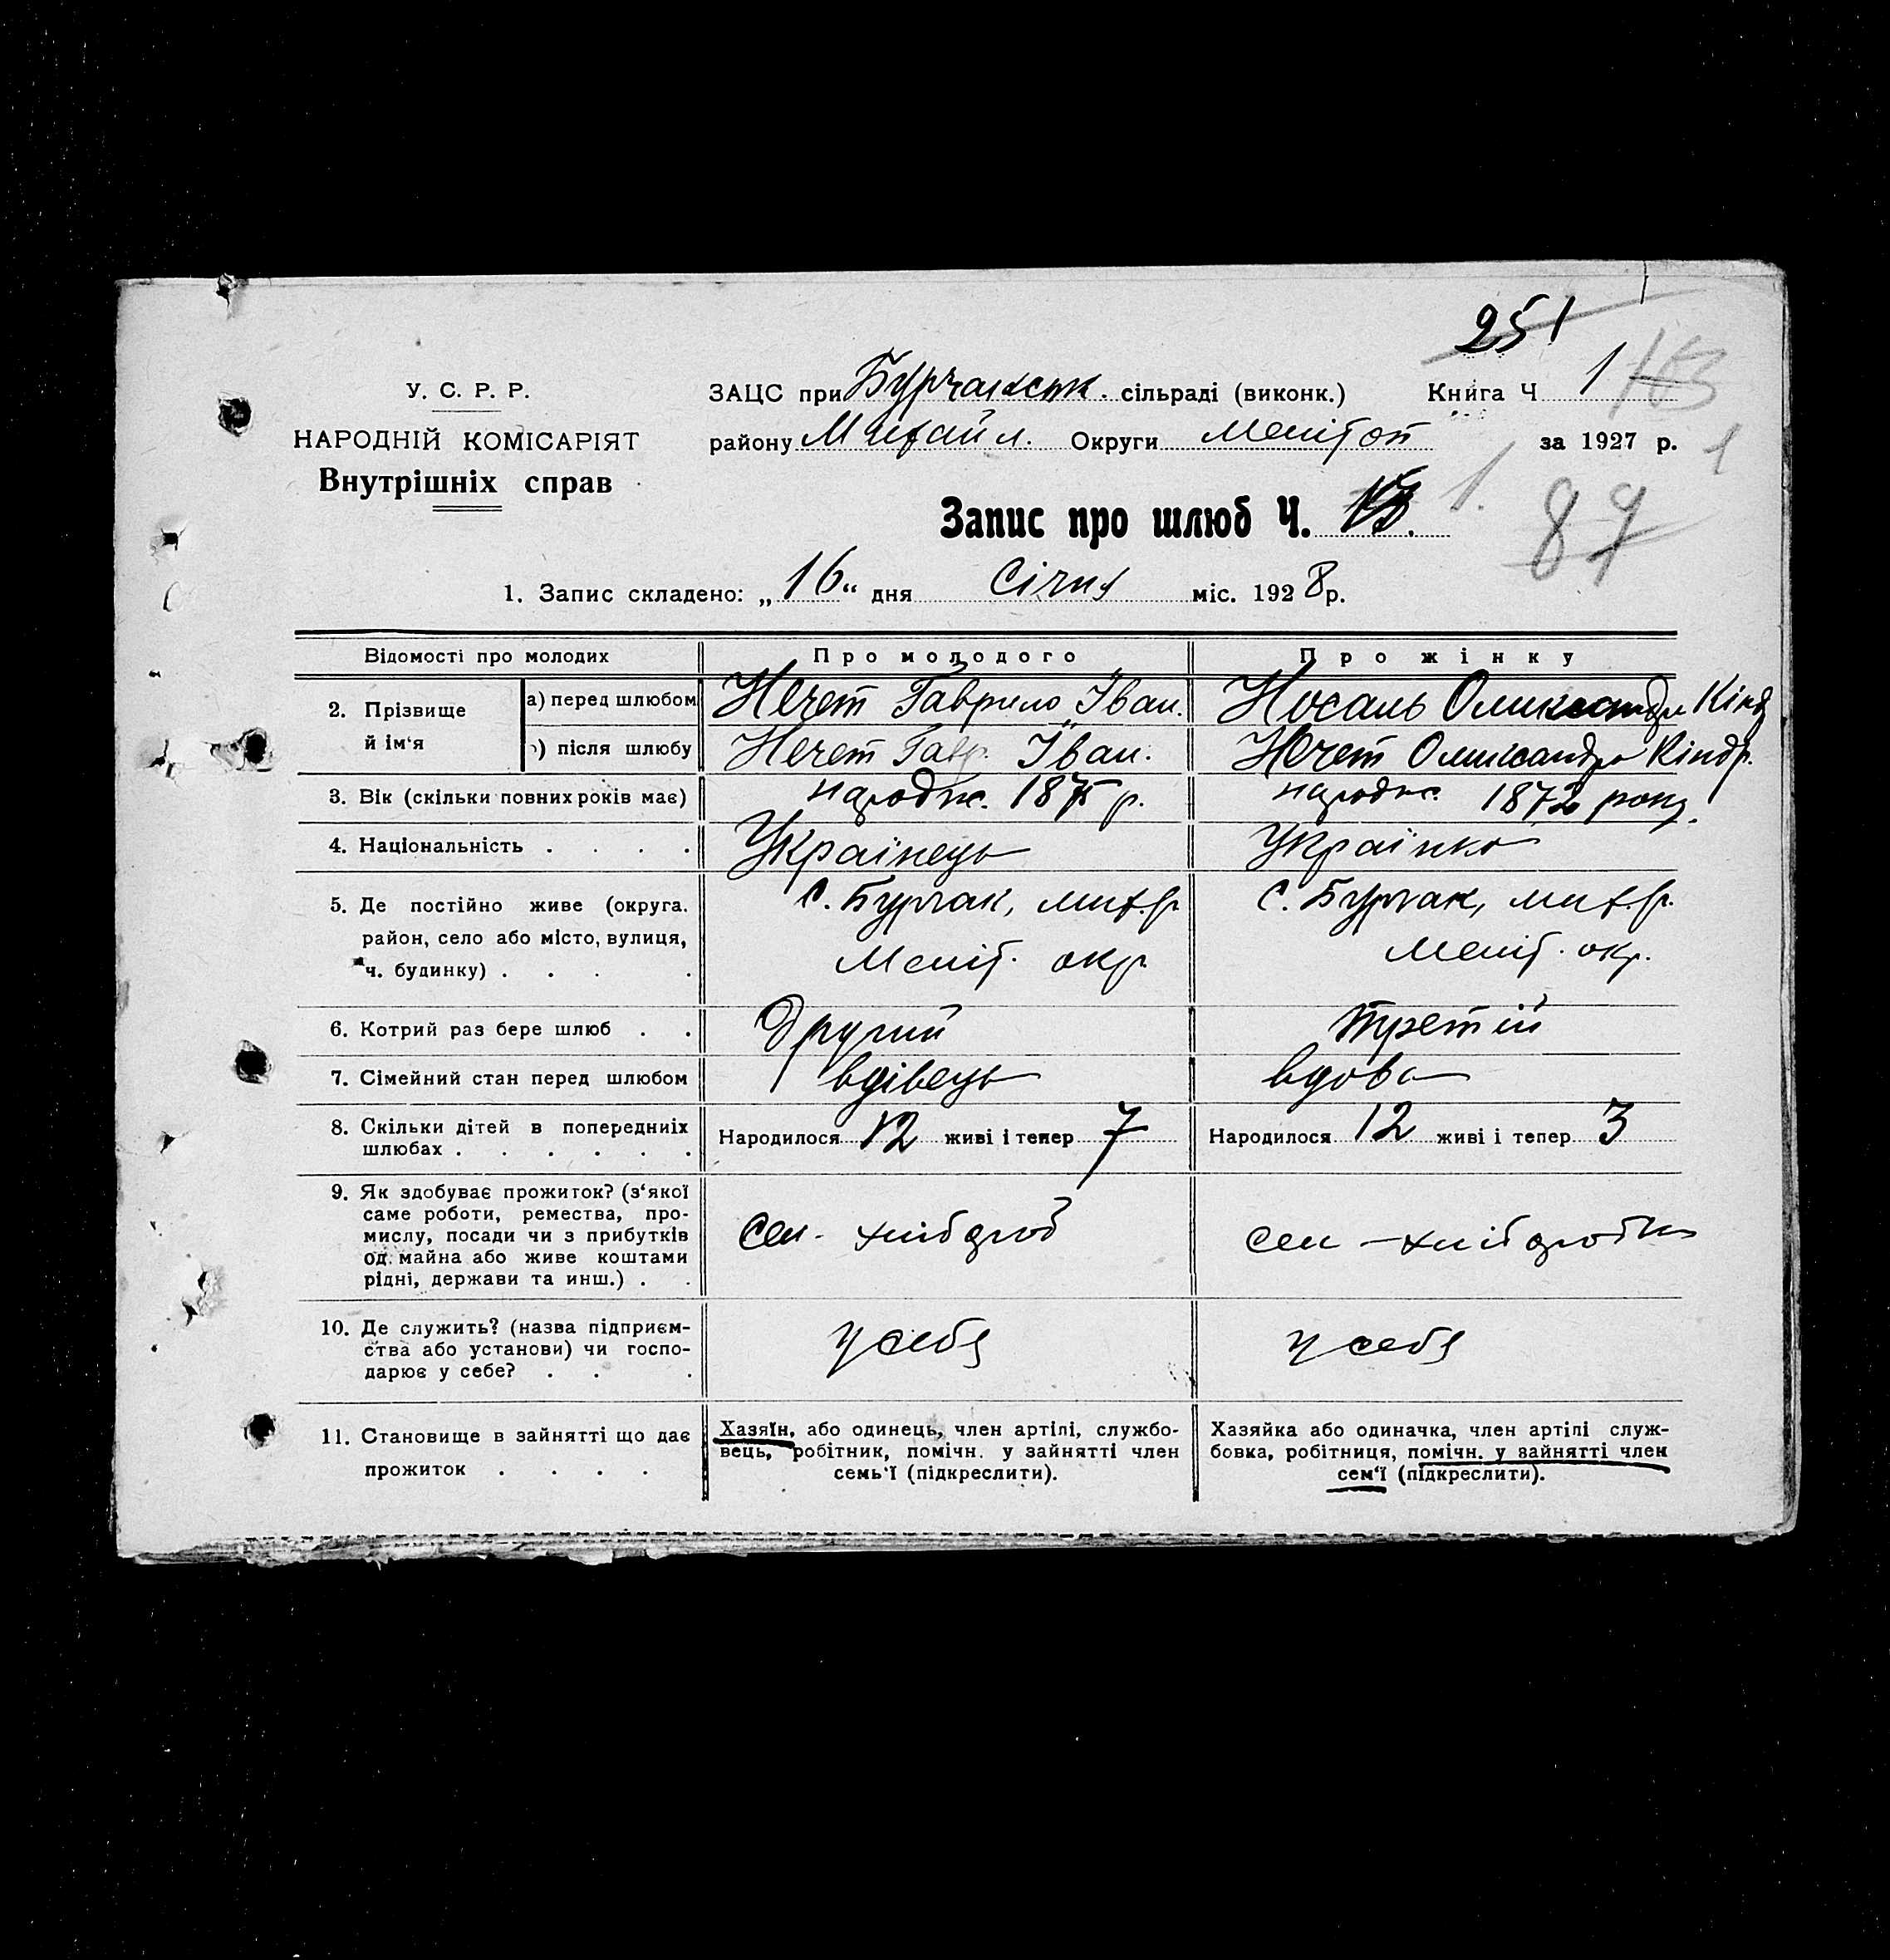 251
У. С. Р. Р.
НАРОДНІЙ КОМІСАРІЯТ
Внутрішніх справ
ЗАЦС при Бурчакськ. сільраді (виконк.) Книга Ч 1 163
району Михайл. Округи Мелітоп за 1927 р. 1
Запис про шлюб Ч. 1.
87
1. Запис складено: „16“ дня Січня міс. 1928 р.
Відомості про молодих Про молодого Про жінку
2. Прізвище й ім‘я
а) перед шлюбом Нечет Гаврило Іван. Носаль Олександра Кінд
) після шлюбу Нечет Гавр. Іван. Нечет Олександра Кіндр.
3. Вік (скільки повних років має) народж. 1875 р. народж. 1872 року.
4. Національність . . . . Українець Українка
5. Де постійно живе (округа. с. Бурчак, мих.р. с. Бурчак, мих.р.
район, село або місто, вулиця, Меліт. окр. Меліт. окр.
ч. будинку) . . . .
6. Котрий раз бере шлюб . . Другий третій
7. Сімейний стан перед шлюбом вдівець вдова
8. Скільки дітей в попередніх Народилося 12 живі і тепер 7 Народилося 12 живі і тепер 3
шлюбах . . . . . .
9. Як здобуває прожиток? (з‘якої
саме роботи, ремества, про-
мислу, посади чи з прибутків сел - хлібороб сел - хлібороб
од. майна або живе коштами
рідні, держави та инш.) . .
10. Де служить? (назва підприєм-
ства або установи) чи госпо- у себя у себя
дарює у себе? . . .
11. Становище в зайнятті що дає
прожиток . . . .
Хазяїн, або одинець, член артілі, службо-
вець, робітник, помічн. у зайнятті член
семь‘ї (підкреслити).
Хазяйка або одиначка, член артілі служ-
бовка, робітниця, помічн. у зайнятті член
сем‘ї (підкреслити).